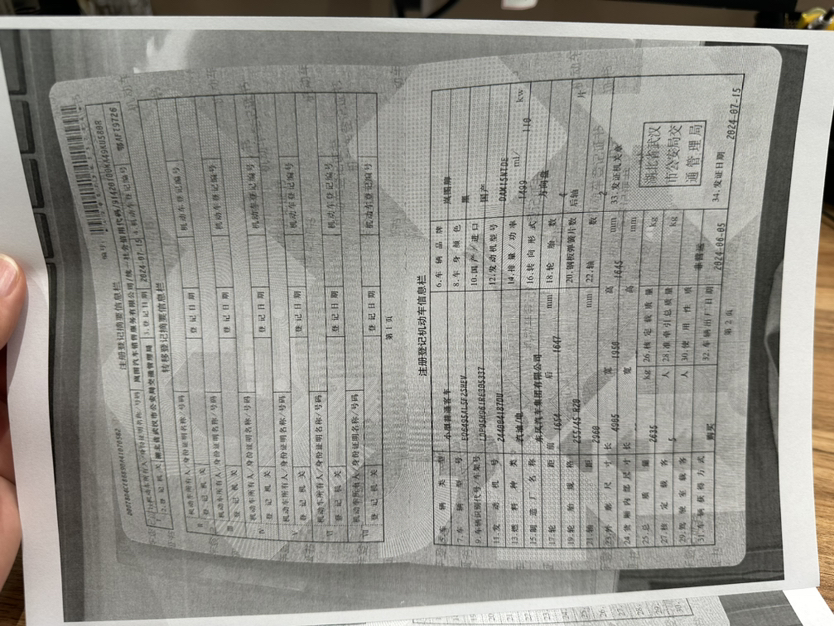 注册登记摘要信息栏
1.机动车所有人/身份证明名称/号码
2.登记机关 湖北省武汉市公安局交通管理局 3.登记日期 2024-07-15 4.机动车登记编号 鄂AFT9726
转移登记摘要信息栏
机动车所有人/身份证明名称/号码
Ⅱ 登记机关 登记日期 机动车登记编号
机动车所有人/身份证明名称/号码
Ⅲ 登记机关 登记日期 机动车登记编号
机动车所有人/身份证明名称/号码
Ⅳ 登记机关 登记日期 机动车登记编号
机动车所有人/身份证明名称/号码
Ⅴ 登记机关 登记日期 机动车登记编号
机动车所有人/身份证明名称/号码
Ⅵ 登记机关 登记日期 机动车登记编号
机动车所有人/身份证明名称/号码
Ⅶ 登记机关 登记日期 机动车登记编号
第1页
注册登记机动车信息栏
5.车辆类型 小型普通客车 6.车辆品牌 岚图牌
7.车辆型号 8.车身颜色 黑
9.车辆识别代号/车架号 10.国产/进口 国产
11.发动机号 12.发动机型号 DAM15NTDE
13.燃料种类 汽油/电 14.排量/功率 1499 ml/ 110 kw
15.制造厂名称 东风汽车集团有限公司 16.转向形式 方向盘
17.轮距 前 1654 后 1647 mm 18.轮胎数 4
19.轮胎规格 255/45 R20 20.钢板弹簧片数 后轴 片
21.轴距 2960 mm 22.轴数 2
23.外廓尺寸 长 4905 宽 1950 高 1645 mm 33.发证机关章
24.货厢内部尺寸 长 宽 高 mm
25.总质量 2635 kg 26.核定载质量 kg
27.核定载客 5 人 28.准牵引总质量 kg
29.驾驶室载客 人 30.使用性质 非营运
31.车辆获得方式 购买 32.车辆出厂日期 2024-06-05
湖北省武汉
市公安局交
通管理局
34.发证日期 2024-07-15
第2页